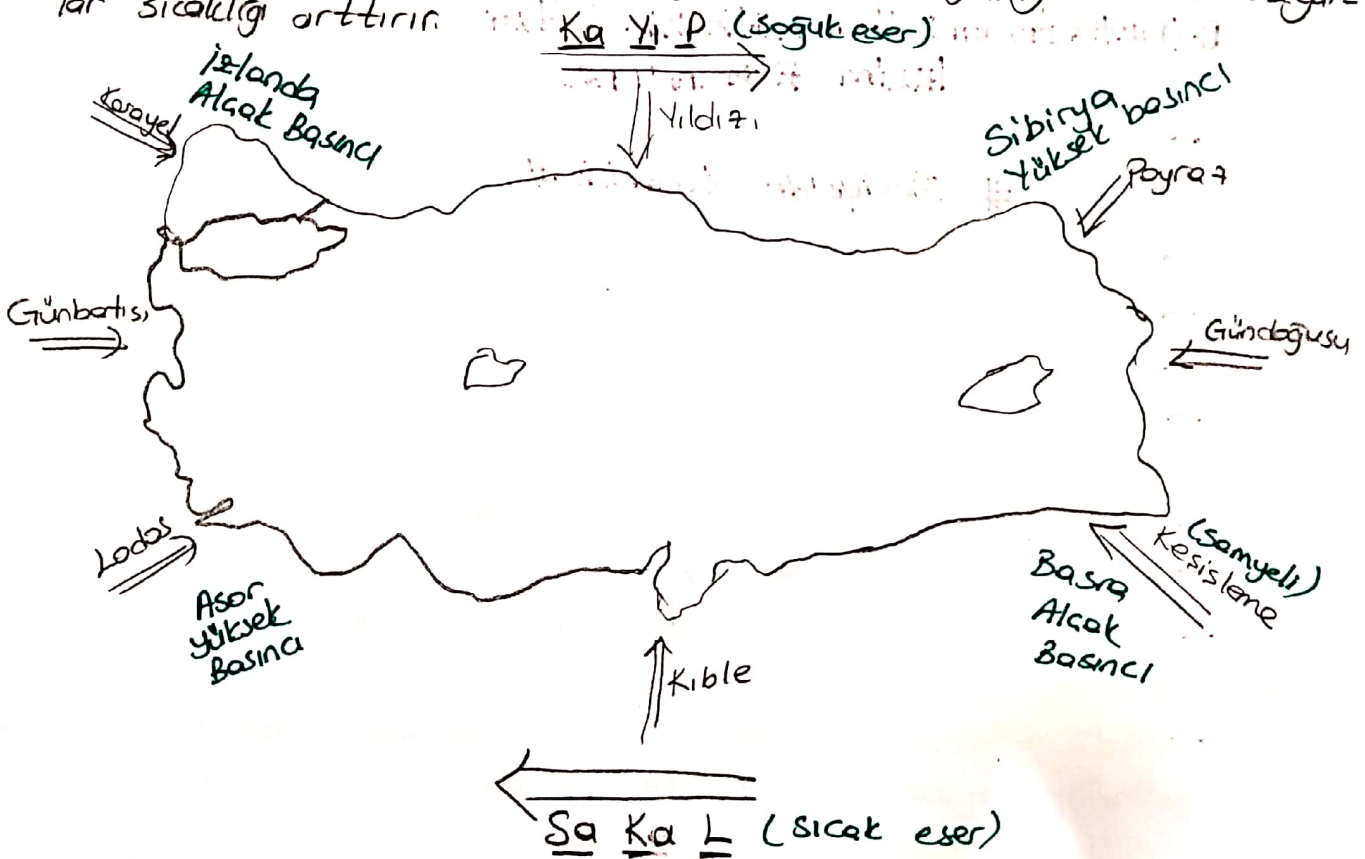 lar sıcaklığı arttırır.
Ka Yı P (soğuk eser)
İzlanda
Alçak Basıncı
Karayel
Yıldızı
Sibirya
Yüksek basıncı
Poyraz
Günbatısı
Gündoğusu
Lodos
Asor
yüksek
Basıncı
Kıble
Basra
Alçak
Basıncı
(Samyeli)
Kesisleme
Sa Ka L (sıcak eser)